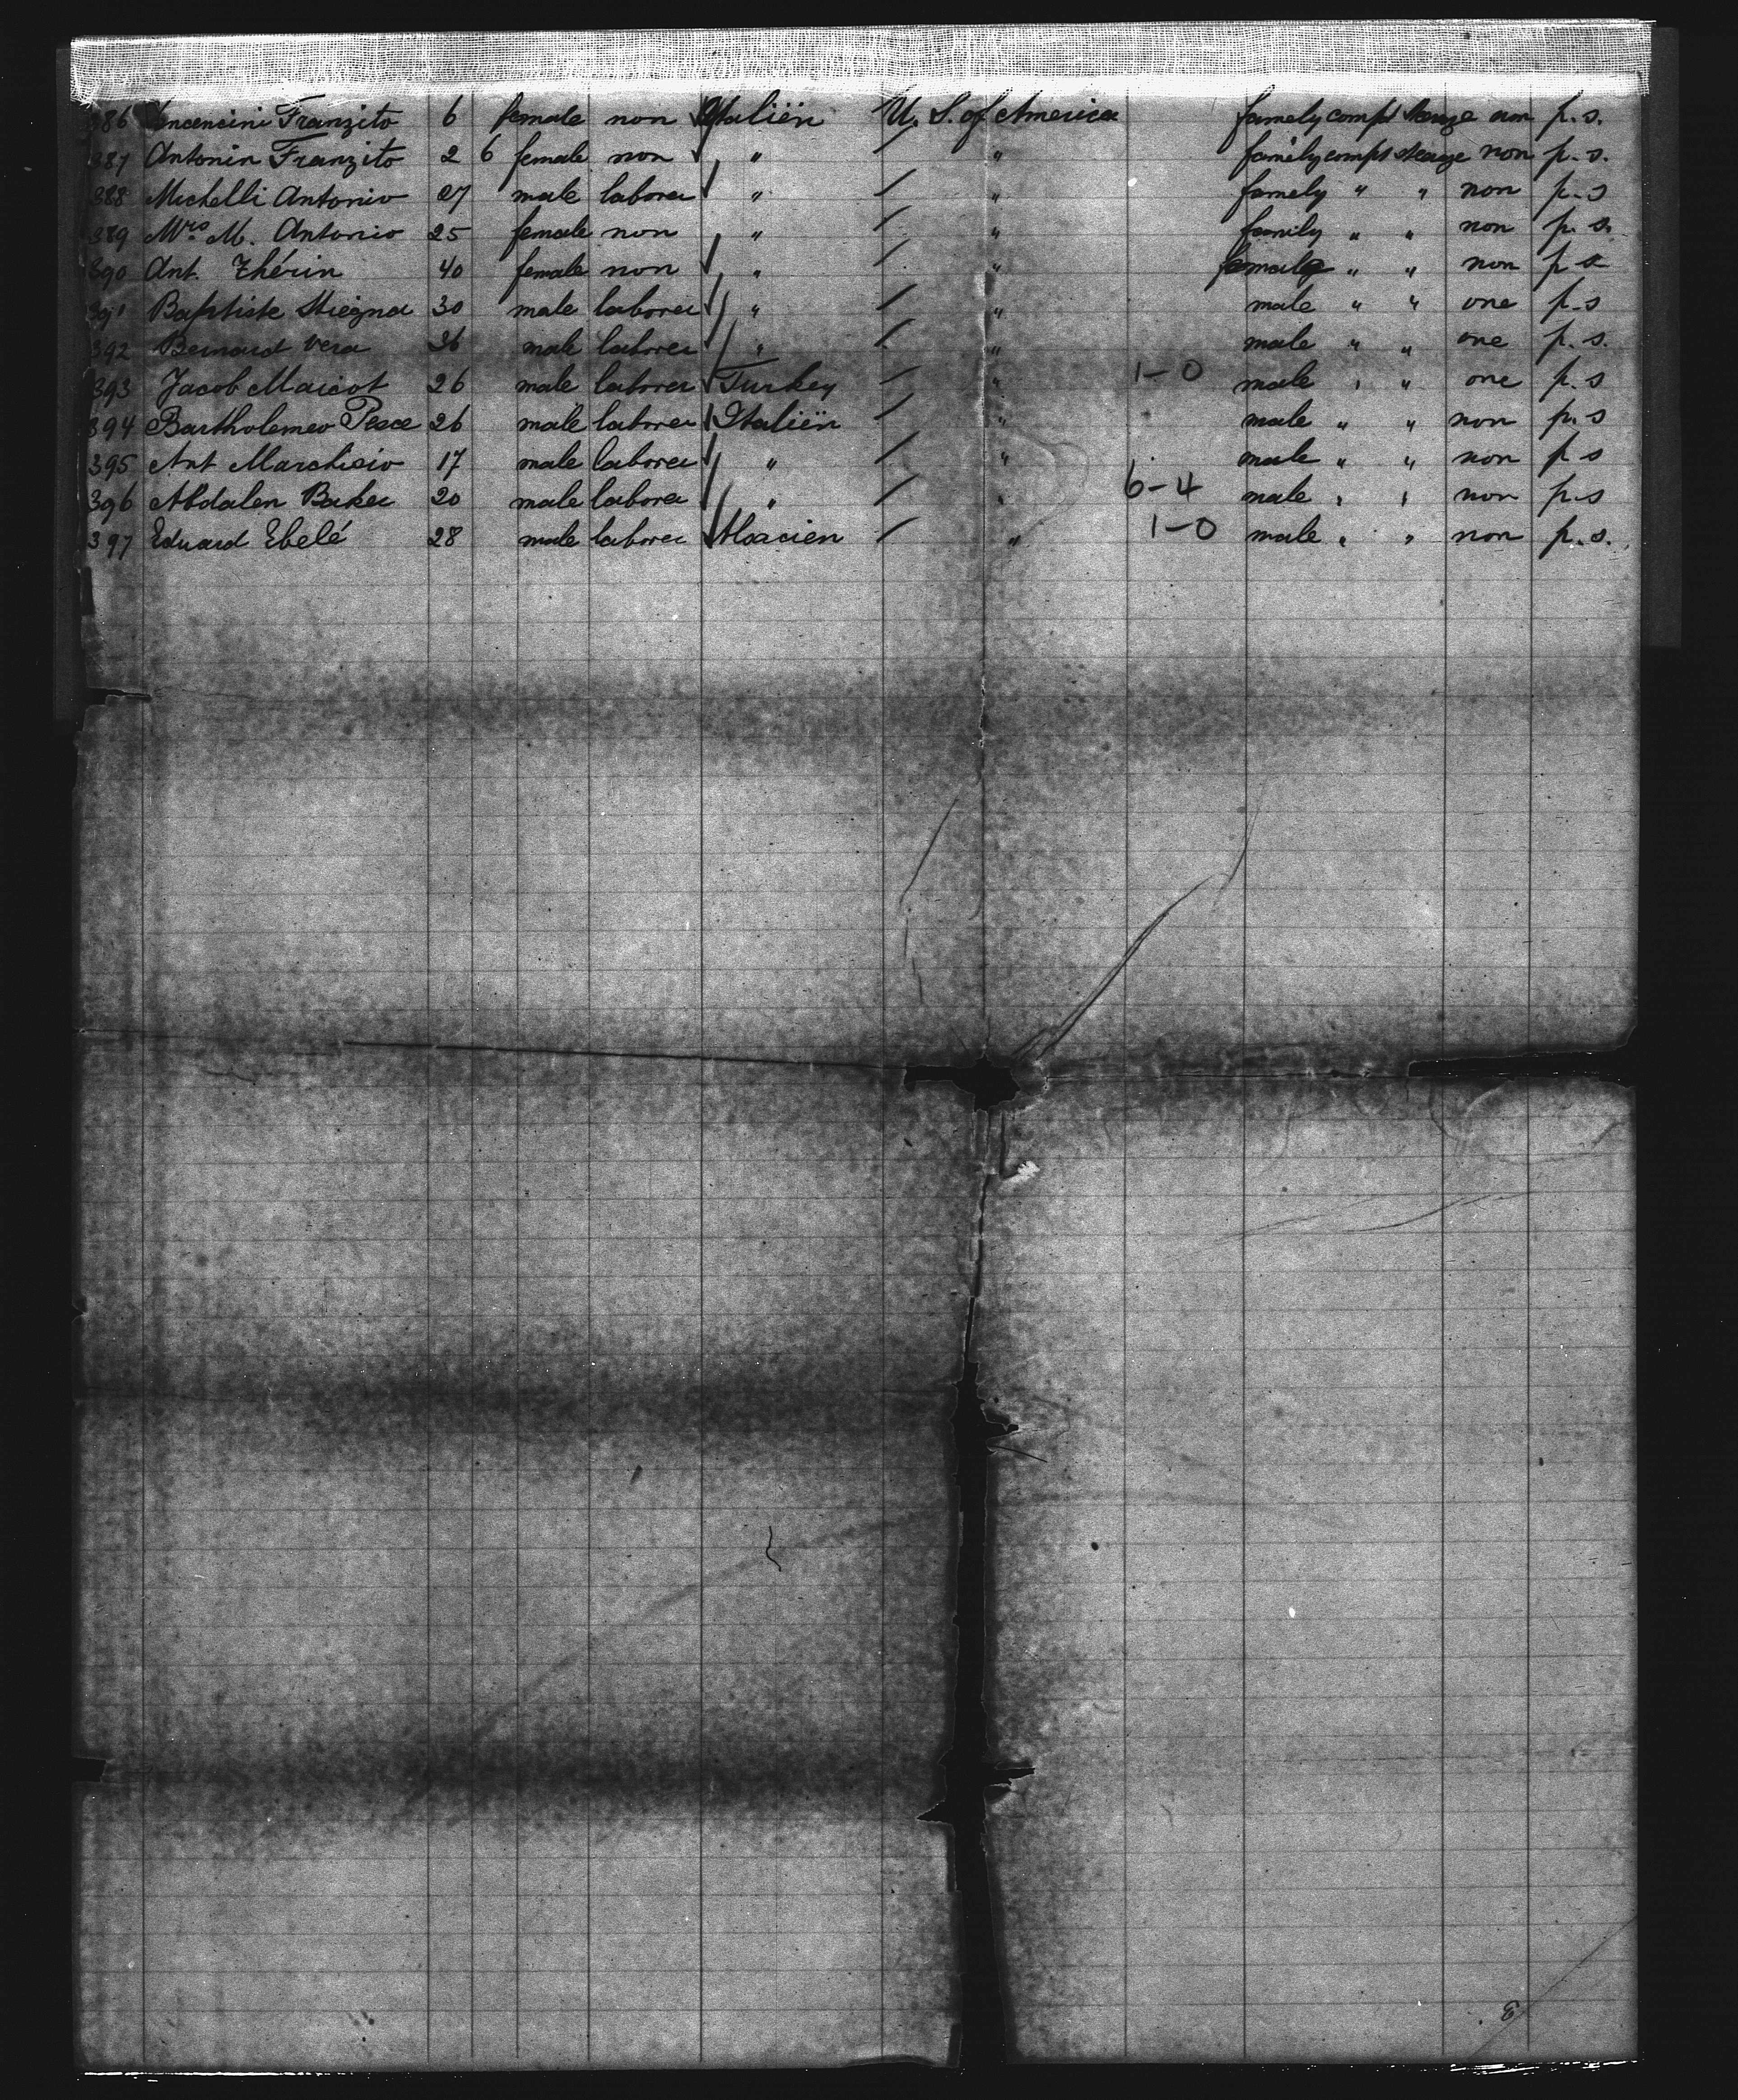 386 Vincencini Franzito 6 female non Italiën U. S. of America famely compt steage non p. s.
387 Antonin Franzito 2 6 female non " " famely compt steage non p. s.
388 Michelli Antonio 27 male laborer " " famely " " non p. s
389 Mrs M. Antonio 25 female non " " family " " non p. s.
390 Ant. Thérin 40 female non " " female " " non p s
391 Baptiste 30 male laborer " " male " " one p. s
392 Bernard Vera 26 male laborer " " male " " one p. s.
393 Jacob Maicot 26 male laborer Turkey " 1-0 male " " one p. s
394 Bartholemeo Pesce 26 male laborer Italiën " male " " non p. s
395 Ant Marchisio 17 male laborer " " male " " non p s
396 Abdalen Baker 20 male laborer " " 6-4 male " " non p. s
397 Eduard Ebelé 28 male laborer Alsacien " 1-0 male " " non p. s.